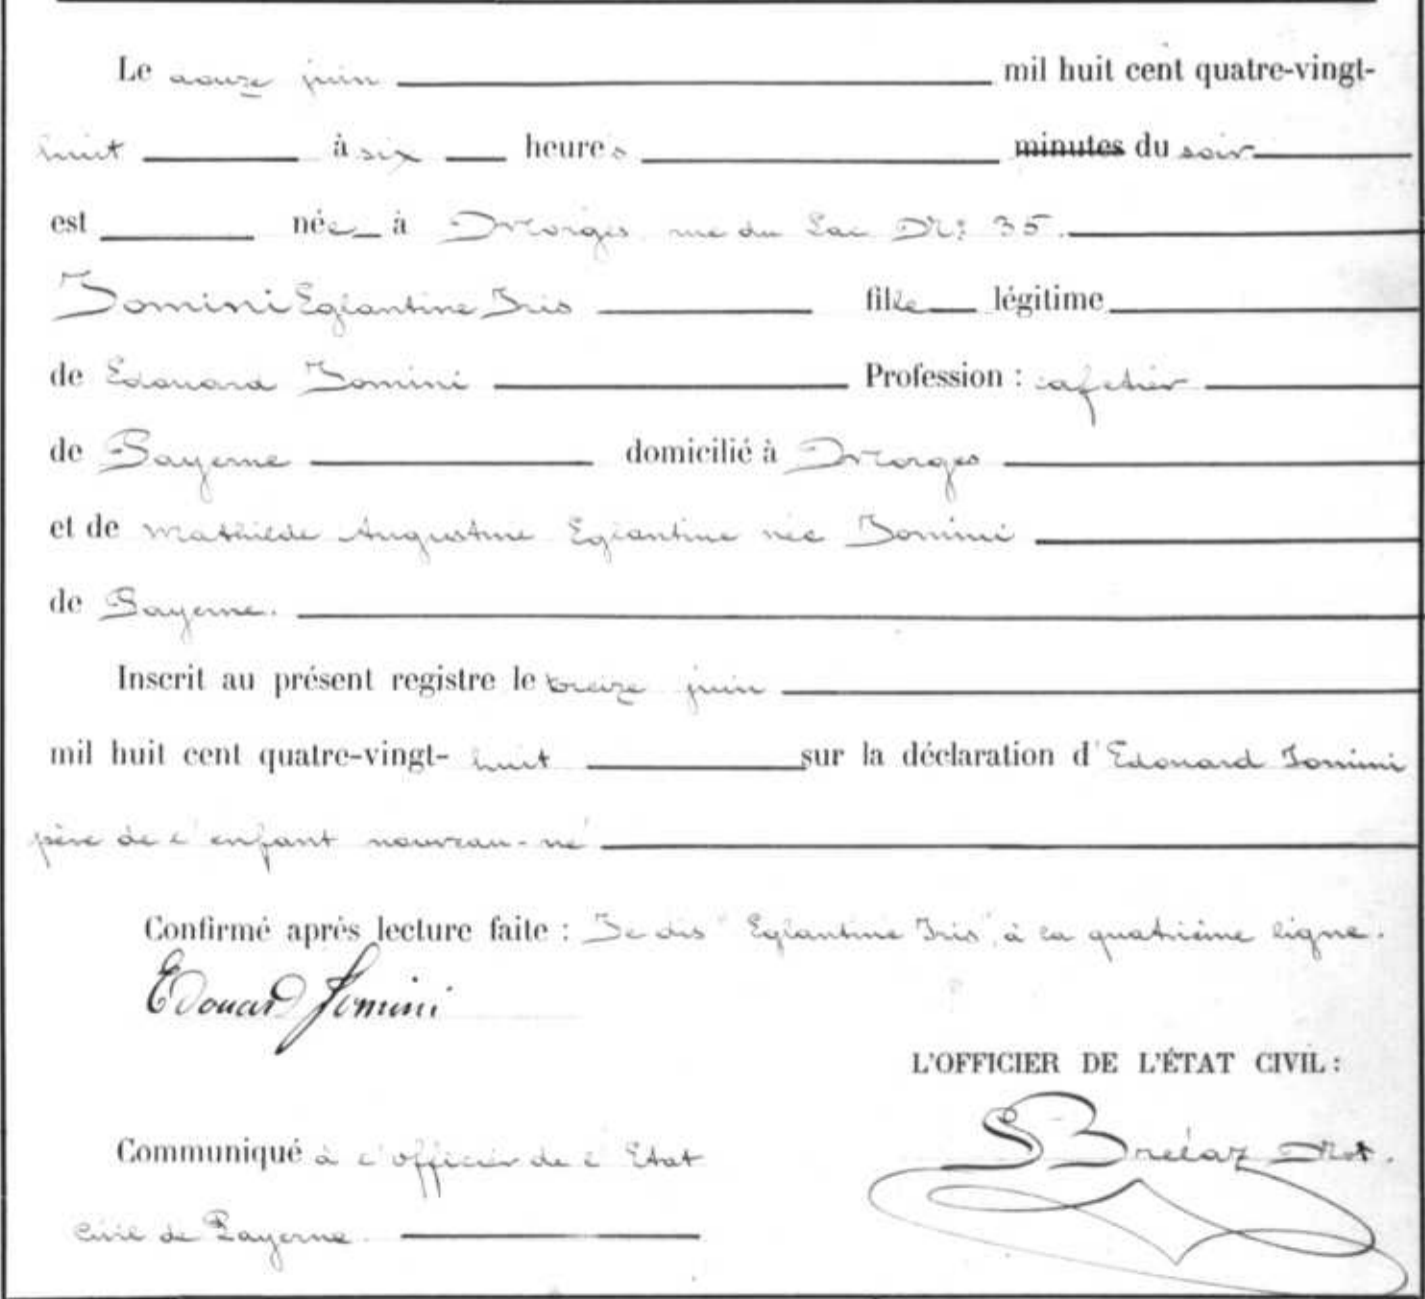 Le douze juin mil huit cent quatre-vingt-
huit à six heures minutes du soir
est née à Morges, rue du Lac No: 35.
Jomini Eglantine Iris fille légitime
de Edouard Jomini Profession : cafetier
de Payerne domicilié à Morges
et de Mathilde Augustine Eglantine née Jomini
de Payerne.
Inscrit au présent registre le treize juin
mil huit cent quatre-vingt- huit sur la déclaration d'Edouard Jomini
père de l'enfant nouveau-né
Confirmé après lecture faite : Je dis "Eglantine Iris", à la quatrième ligne.
Edouard Jomini
L'OFFICIER DE L'ÉTAT CIVIL :
Communiqué à l'officier de l'Etat
S Brélaz Not.
civil de Payerne.